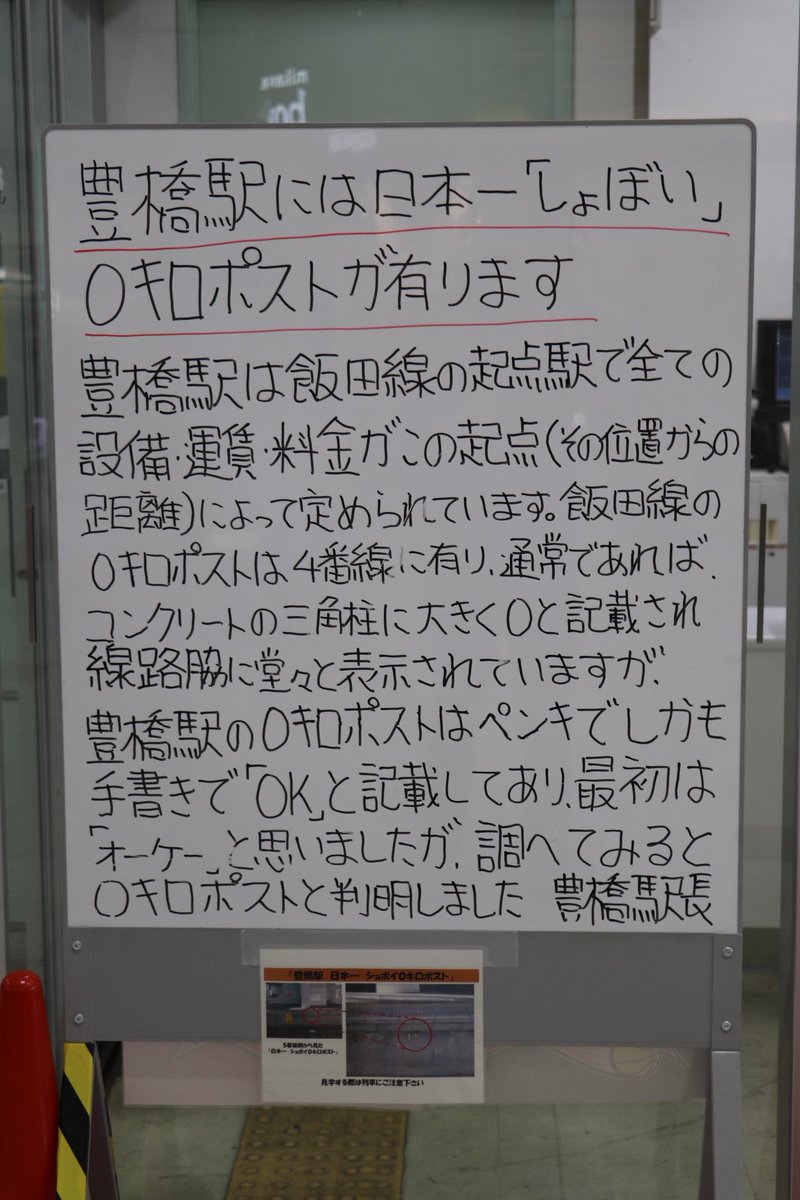 豊橋駅には日本一「しょぼい」
0キロポストが有ります
豊橋駅は飯田線の起点駅で全ての
設備・運賃・料金がこの起点(その位置からの
距離)によって定められています。飯田線の
0キロポストは4番線に有り、通常であれば、
コンクリートの三角柱に大きく0と記載され
線路脇に堂々と表示されていますが、
豊橋駅の0キロポストはペンキでしかも
手書きで「OK」と記載してあり、最初は
「オーケー」と思いましたが、調べてみると
0キロポストと判明しました 豊橋駅長
「豊橋駅 日本一 ショボイ0キロポスト」
5番線側から見た
「日本一 ショボイ0キロポスト」
見学する際は列車にご注意下さい